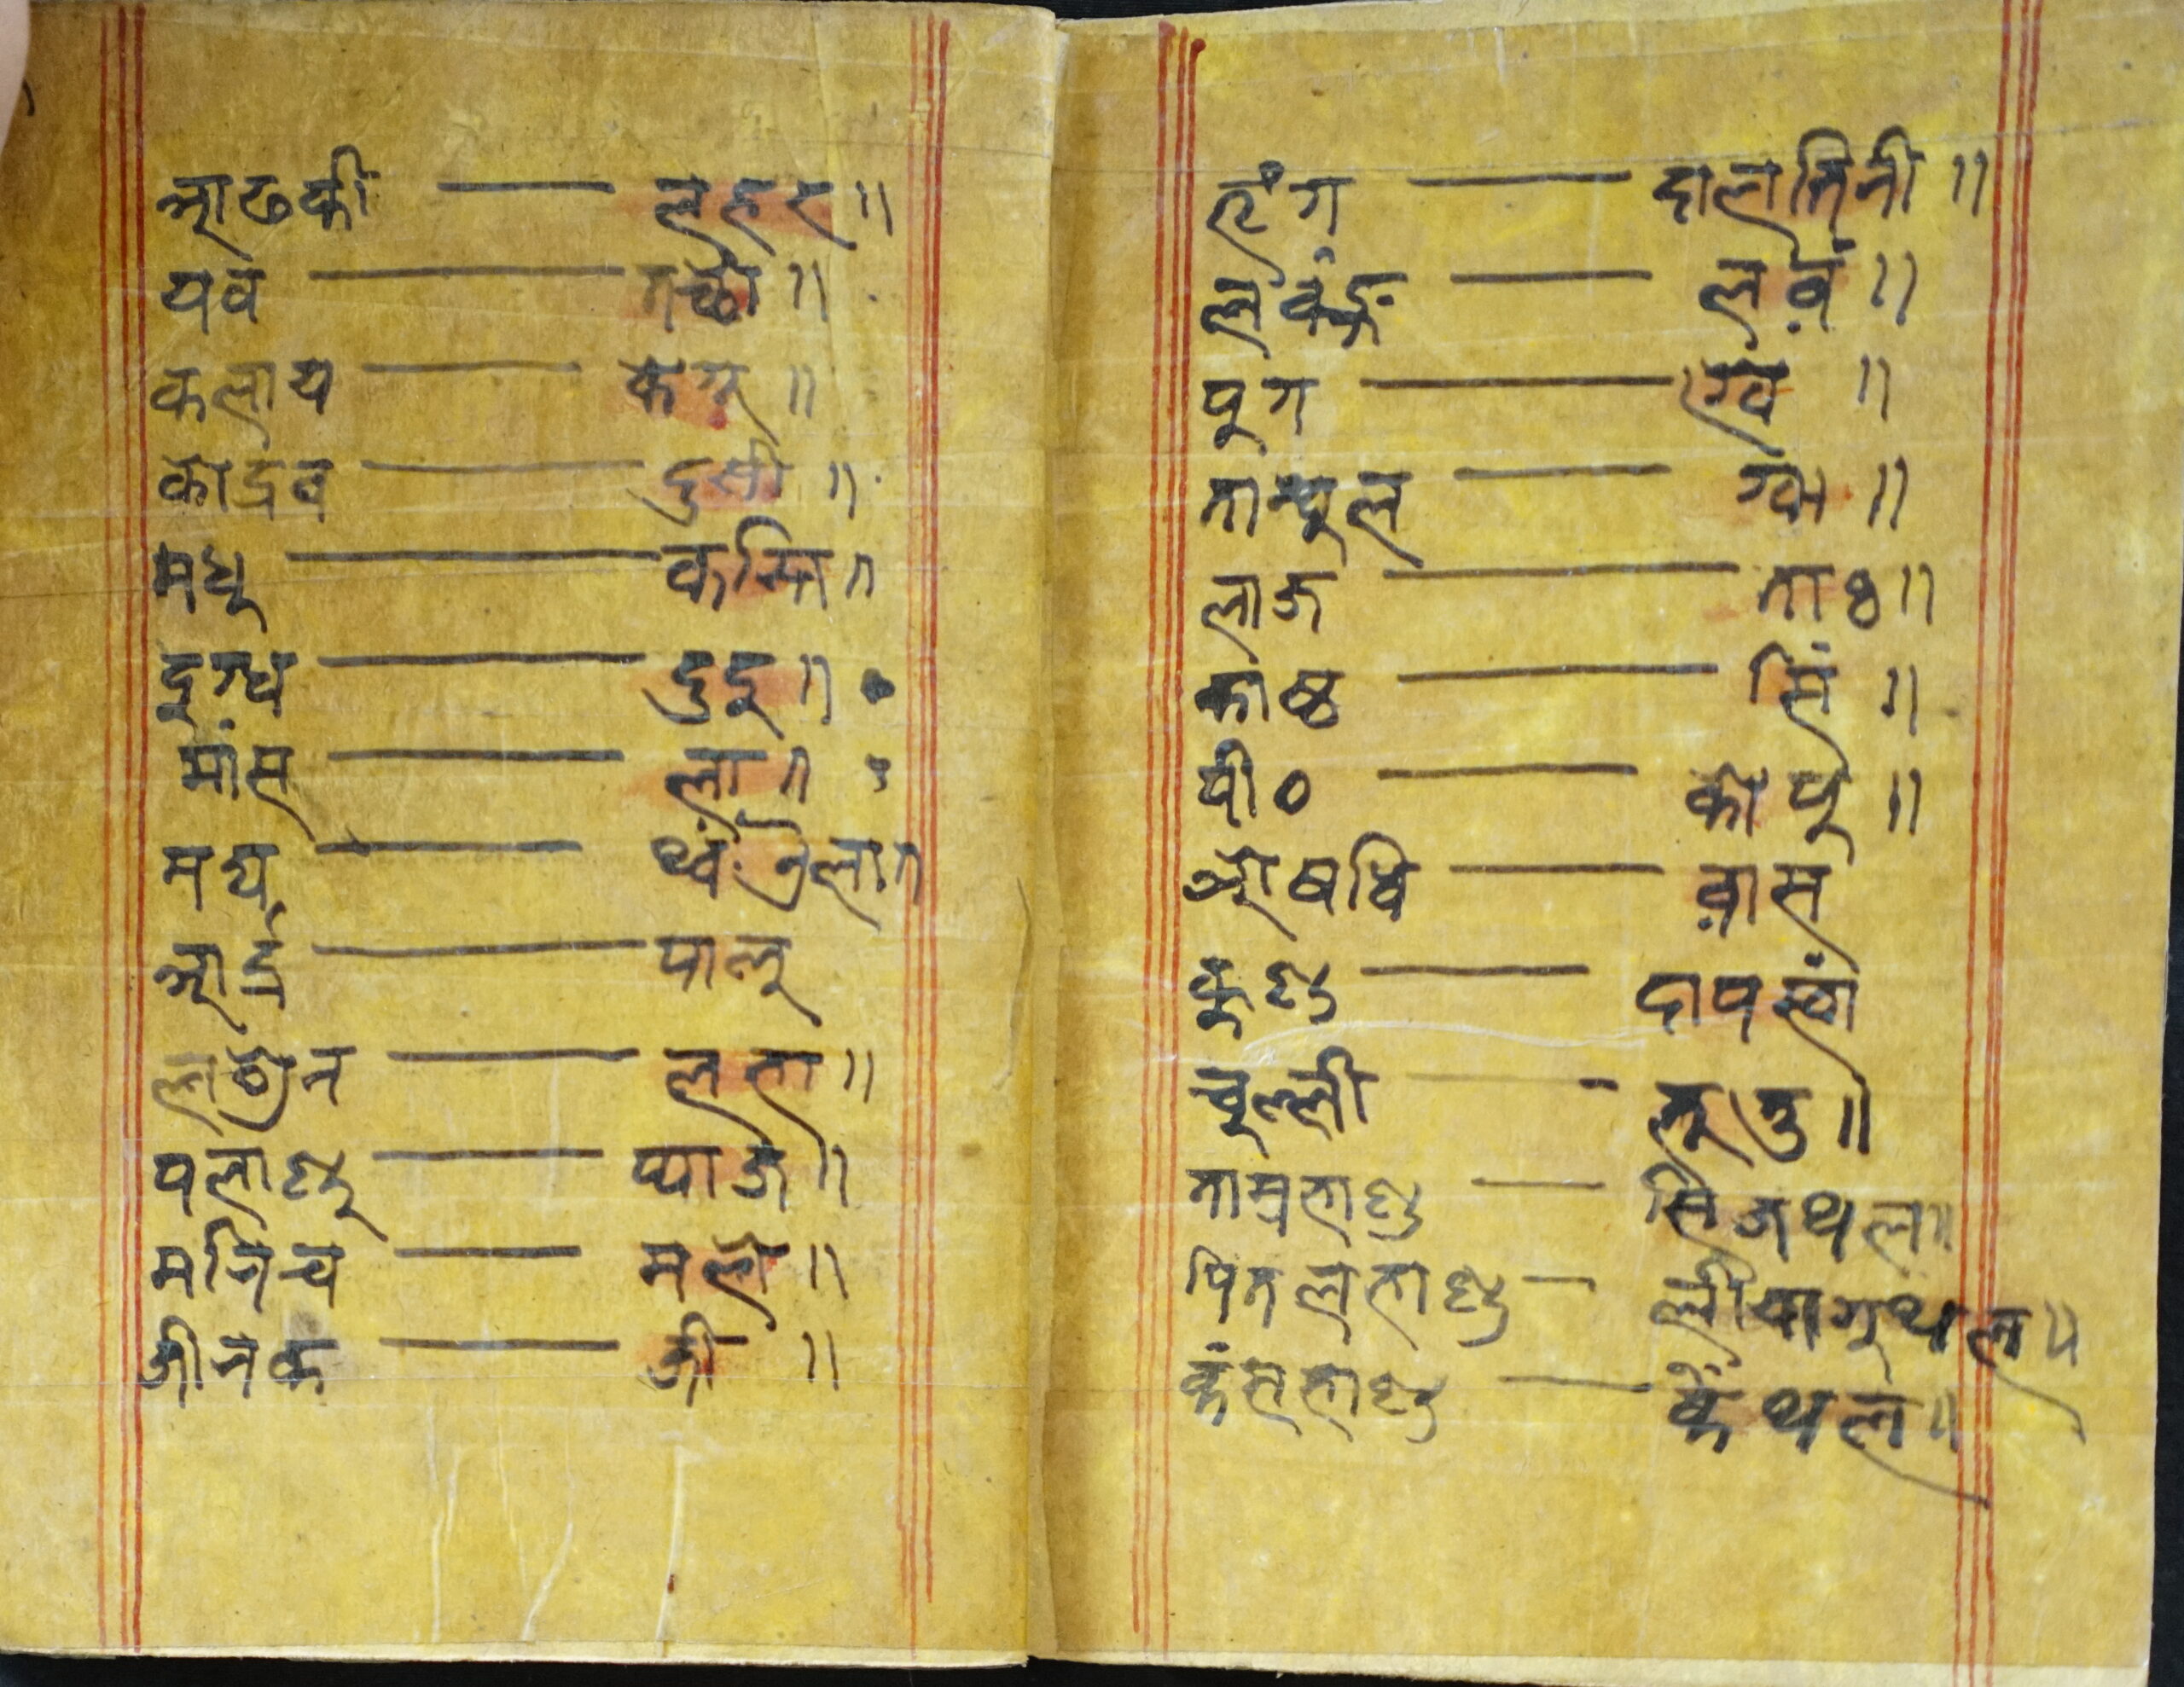 आढकी — लहर॥
यव — तछो॥
कलाय — केगू॥
कोद्रव — दुसी॥
मधु — कस्ति॥
दुग्ध — दुदु॥
मांस — ला॥
मद्य — थ्वं ऐला॥
आर्द्र — पालु
लशुन — लभा॥
पलाण्डु — प्याज॥
मरिच — मले॥
जीरक — जी॥
त्वंग — दालचिनी॥
लवंङ्ग — लवं॥
पुग — ग्वे॥
ताम्बुल — ग्वा॥
लाज — ताय्॥
काष्ठ — सिं॥
पीठ — कोपु॥
औषधि — वास
कुण्ड — दापखां
चुल्ली — भुतु॥
ताम्रभाण्ड — सिजथल॥
पितलभाण्ड — लीयागुथल॥
कंसभाण्ड — कँथल॥